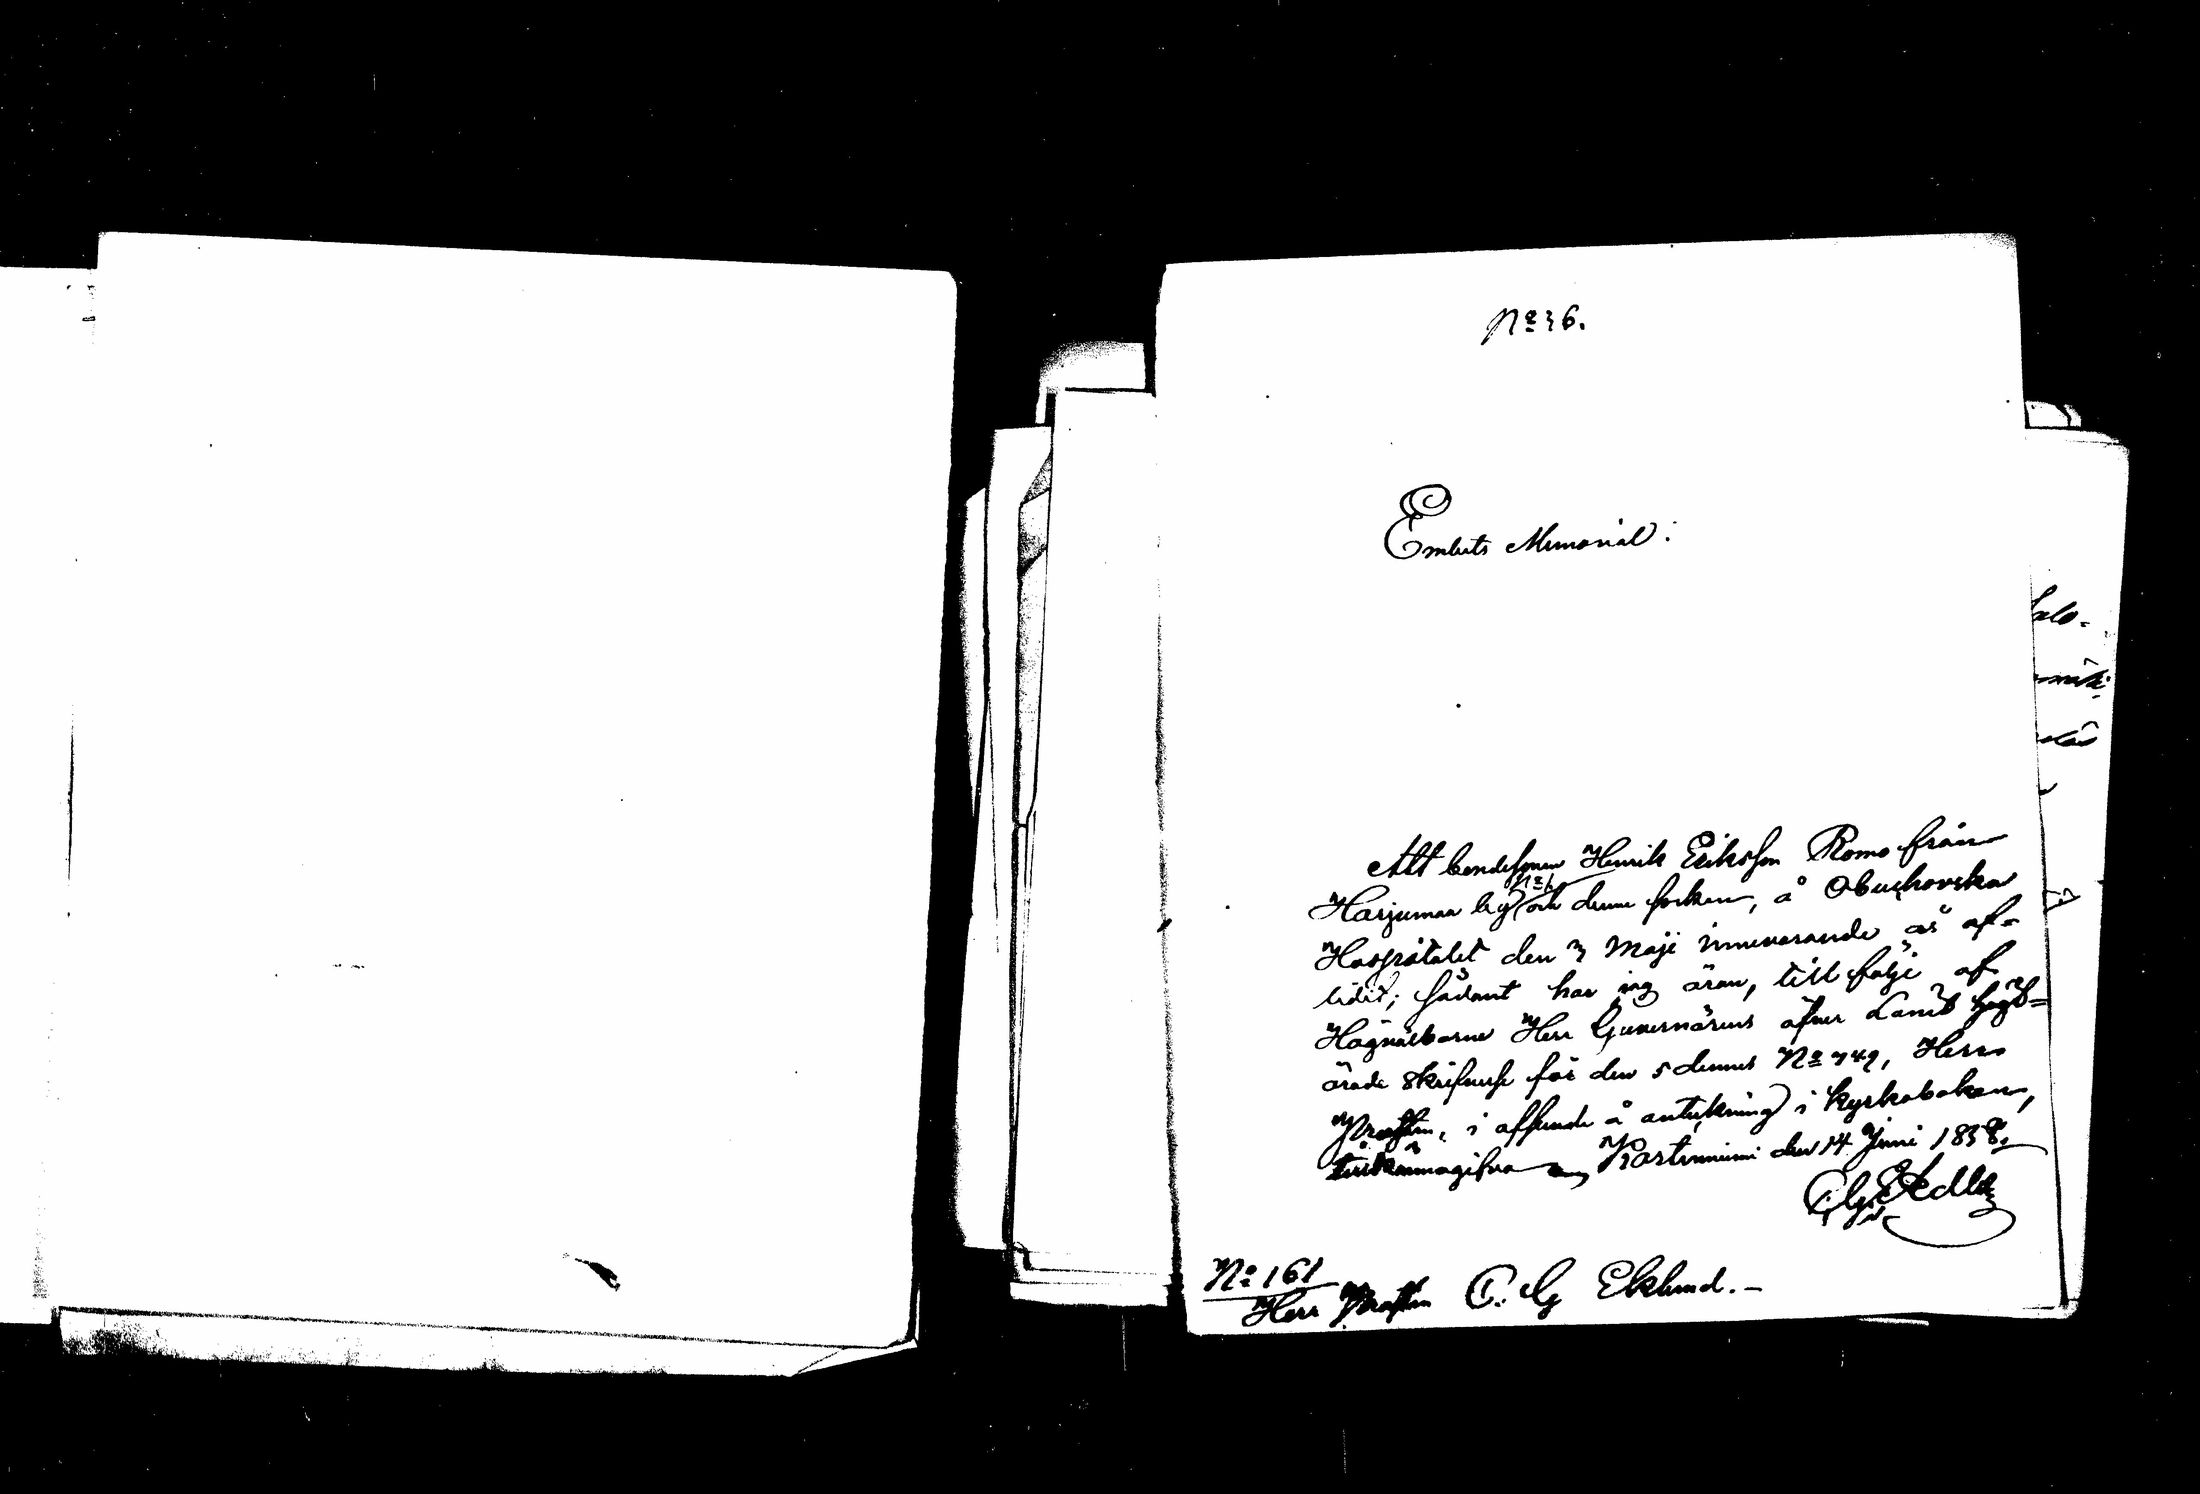 No 36.
Embets Memorial:
Att bondesonen Henrik Eriksson Romo från
Harjumaa by No 6 och denne socken, å Obuchovska
Hospitalet den 3 Maji innevarande år af-
lidit; sådant har jag äran, till följe af
Högvälborne Herr Guvernörens öfver Länet högt-
ärade skrifvelse för den 5 dennes No 749, Herr
Prosten, i afseende å anteckning i kyrkoboken,
tillkännagifva Kostrumini den 14 Juni 1838.
No 161
Herr Prosten C. G Eklund.-